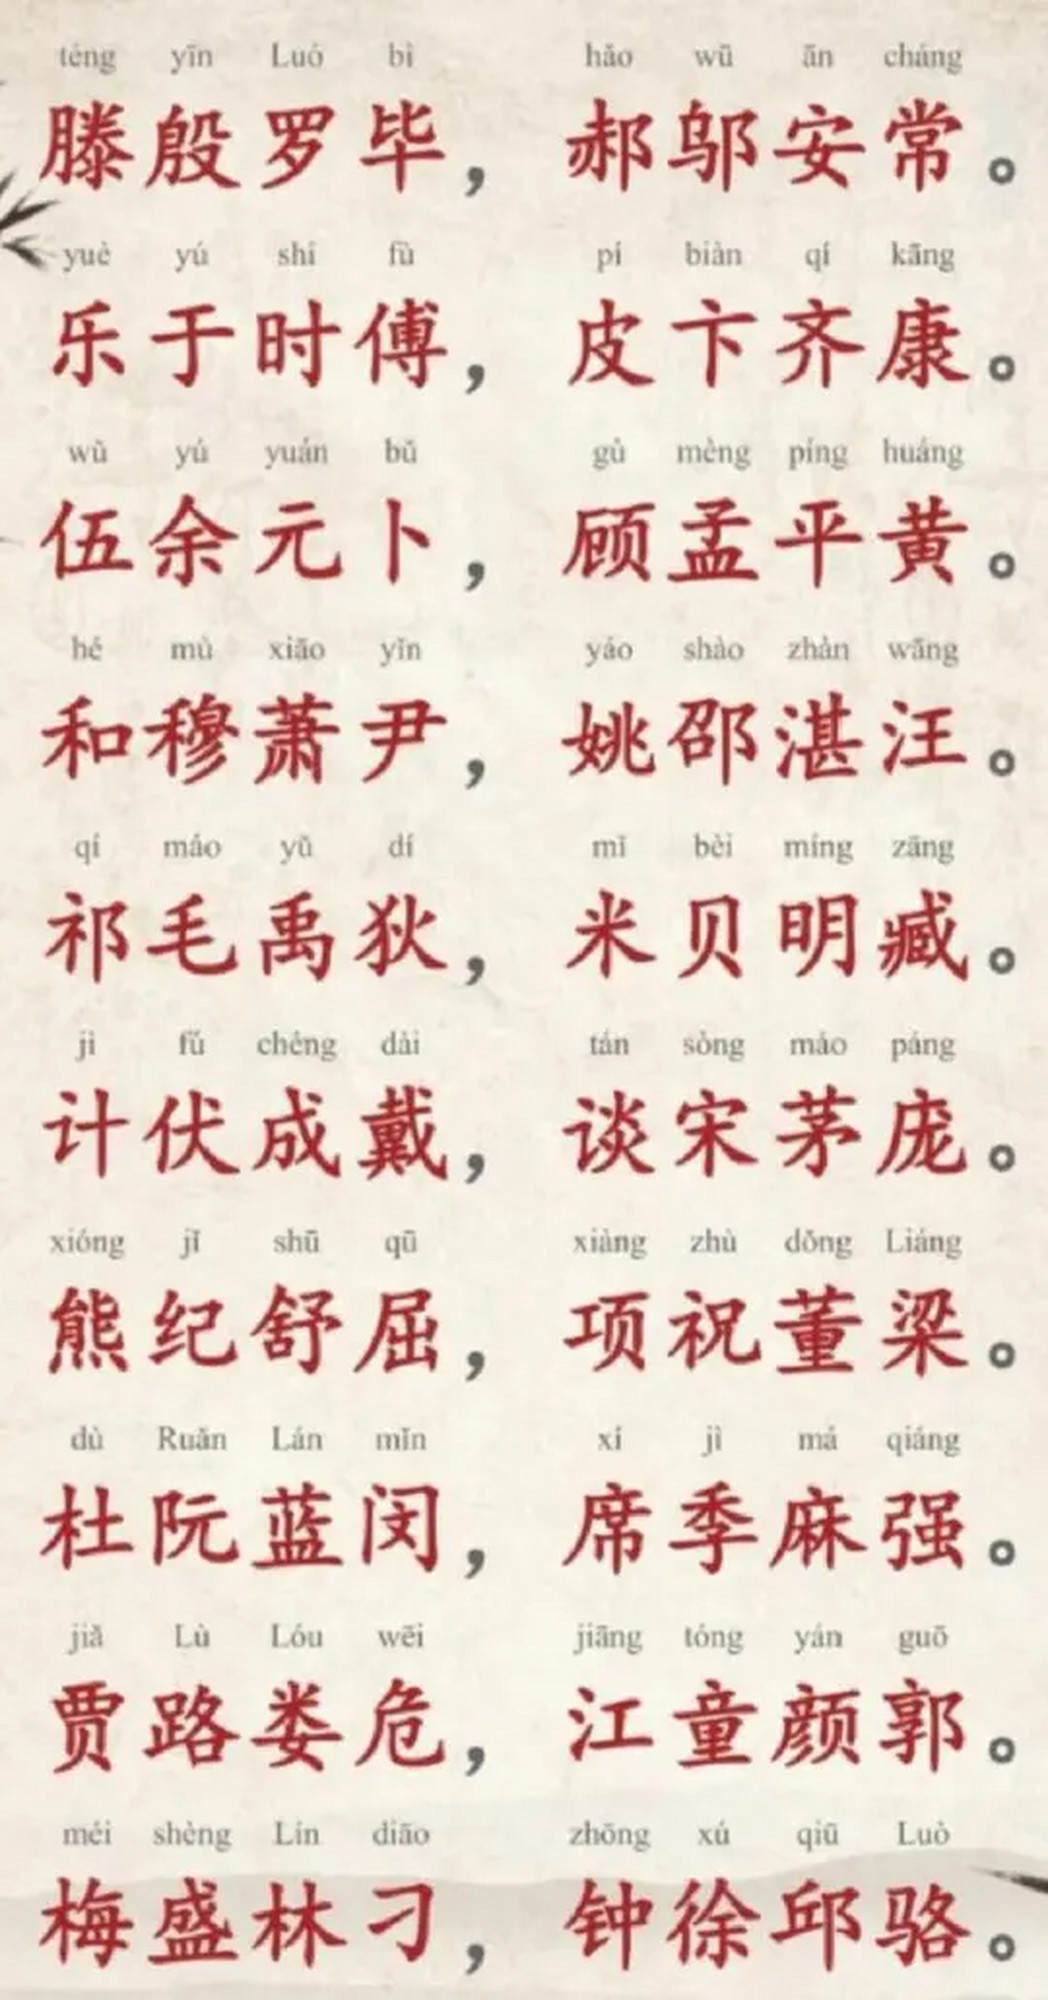 téng yīn Luó bì hǎo wū ān cháng
滕殷罗毕，郝邬安常。
yuè yú shí fù pí biàn qí kāng
乐于时傅，皮卞齐康。
wǔ yú yuán bǔ gù mèng píng huáng
伍余元卜，顾孟平黄。
hé mù xiāo yǐn yáo shào zhàn wāng
和穆萧尹，姚邵湛汪。
qí máo yǔ dí mǐ bèi míng zāng
祁毛禹狄，米贝明臧。
jì fú chéng dài tán sòng máo páng
计伏成戴，谈宋茅庞。
xióng jǐ shū qū xiàng zhù dǒng Liáng
熊纪舒屈，项祝董梁。
dù Ruǎn Lán mǐn xí jì má qiáng
杜阮蓝闵，席季麻强。
jiǎ Lù Lóu wēi jiāng tóng yán guō
贾路娄危，江童颜郭。
méi shèng Lín diāo zhōng xú qiū Luò
梅盛林刁，钟徐邱骆。